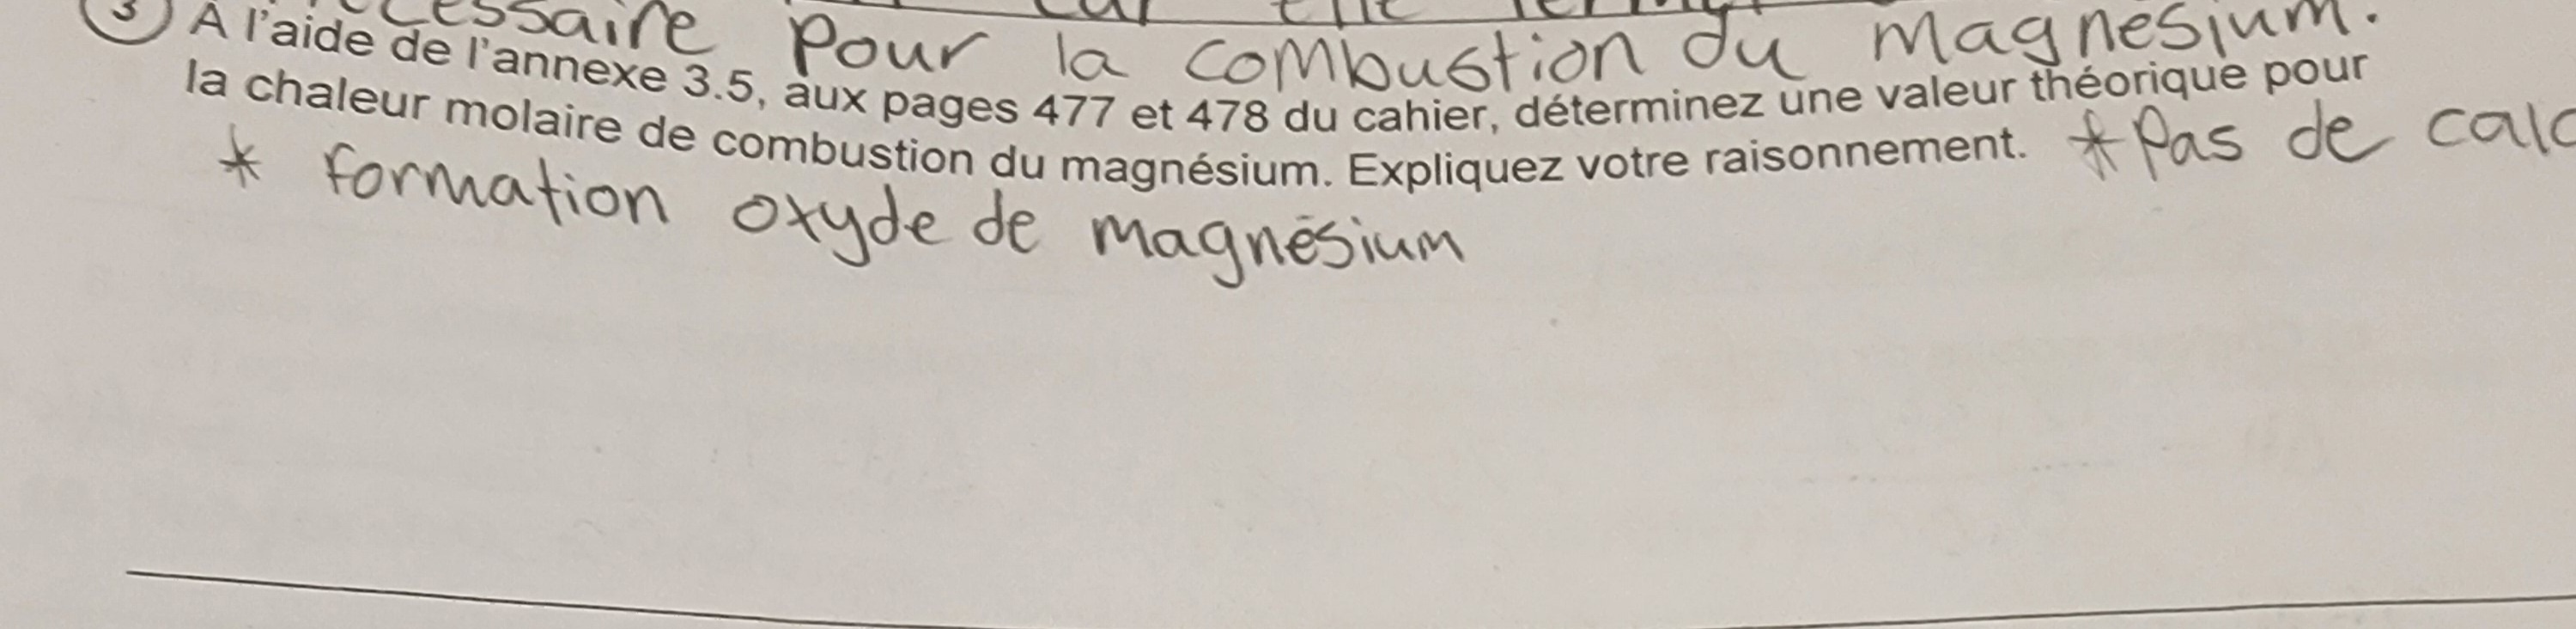 pour la combustion du magnésium.
3 À l'aide de l'annexe 3.5, aux pages 477 et 478 du cahier, déterminez une valeur théorique pour
la chaleur molaire de combustion du magnésium. Expliquez votre raisonnement. * Pas de calc
* formation oxyde de magnésium